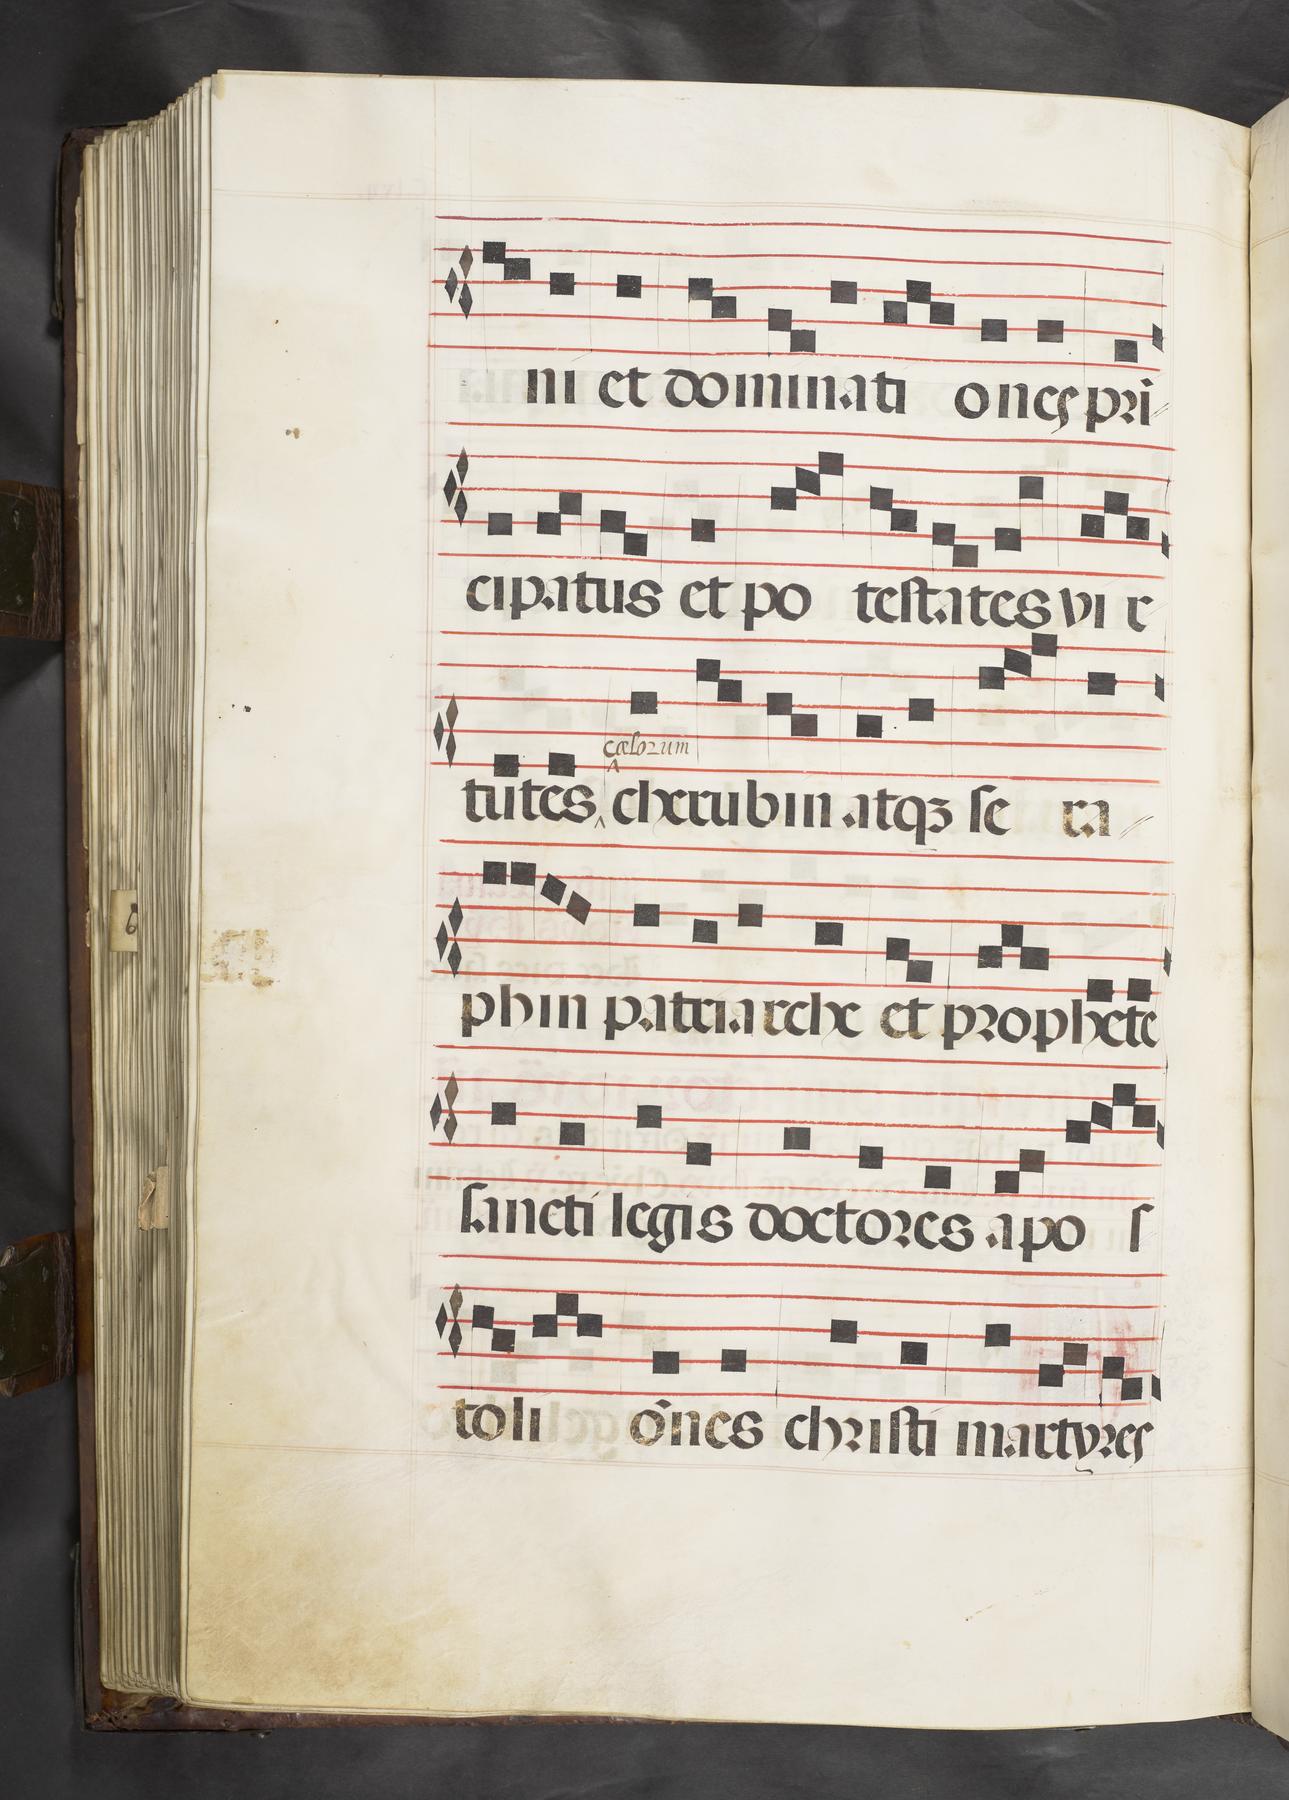 ni et dominati ones pri
cipatus et po testates vi r
cælorum
tutes cherubin atqꝫ se ra
phin patriarche et prophete
sancti legis doctores apo s
toli oñes christi martyres
6